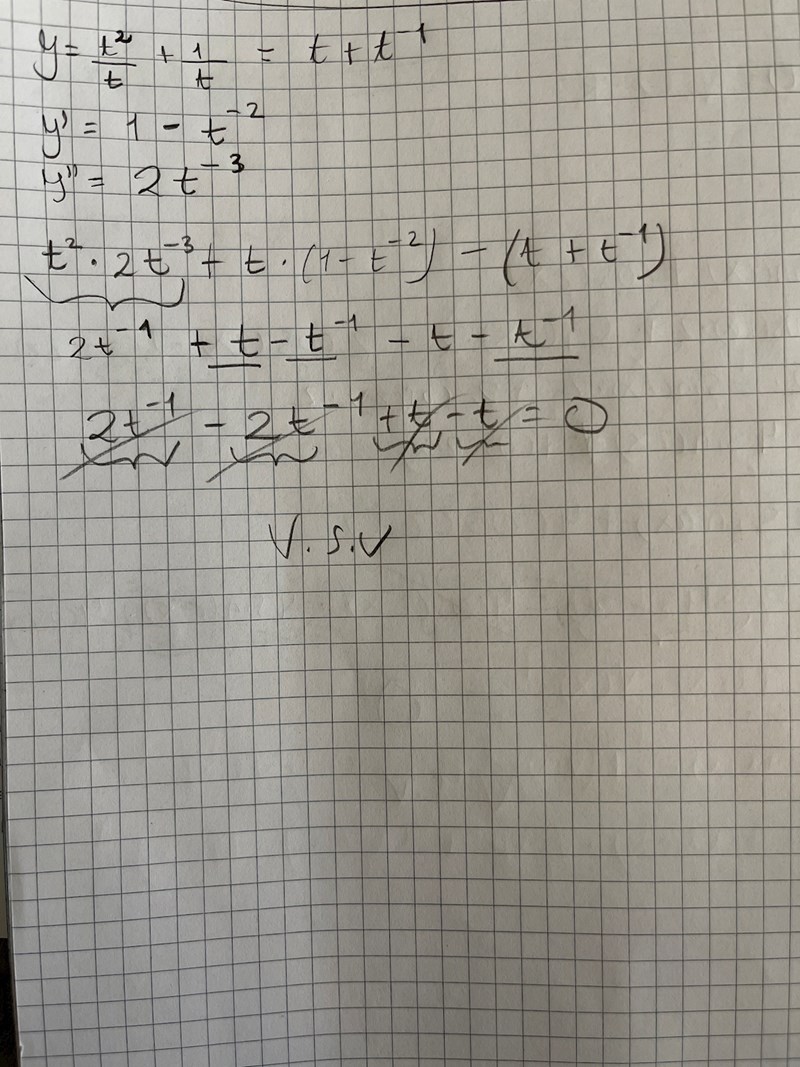 y = t²/t + 1/t = t + t⁻¹
y' = 1 - t⁻²
y'' = 2t⁻³
t² · 2t⁻³ + t · (1 - t⁻²) - (t + t⁻¹)
2t⁻¹ + t - t⁻¹ - t - t⁻¹
2t⁻¹ - 2t⁻¹ + t - t = 0
V.S.V